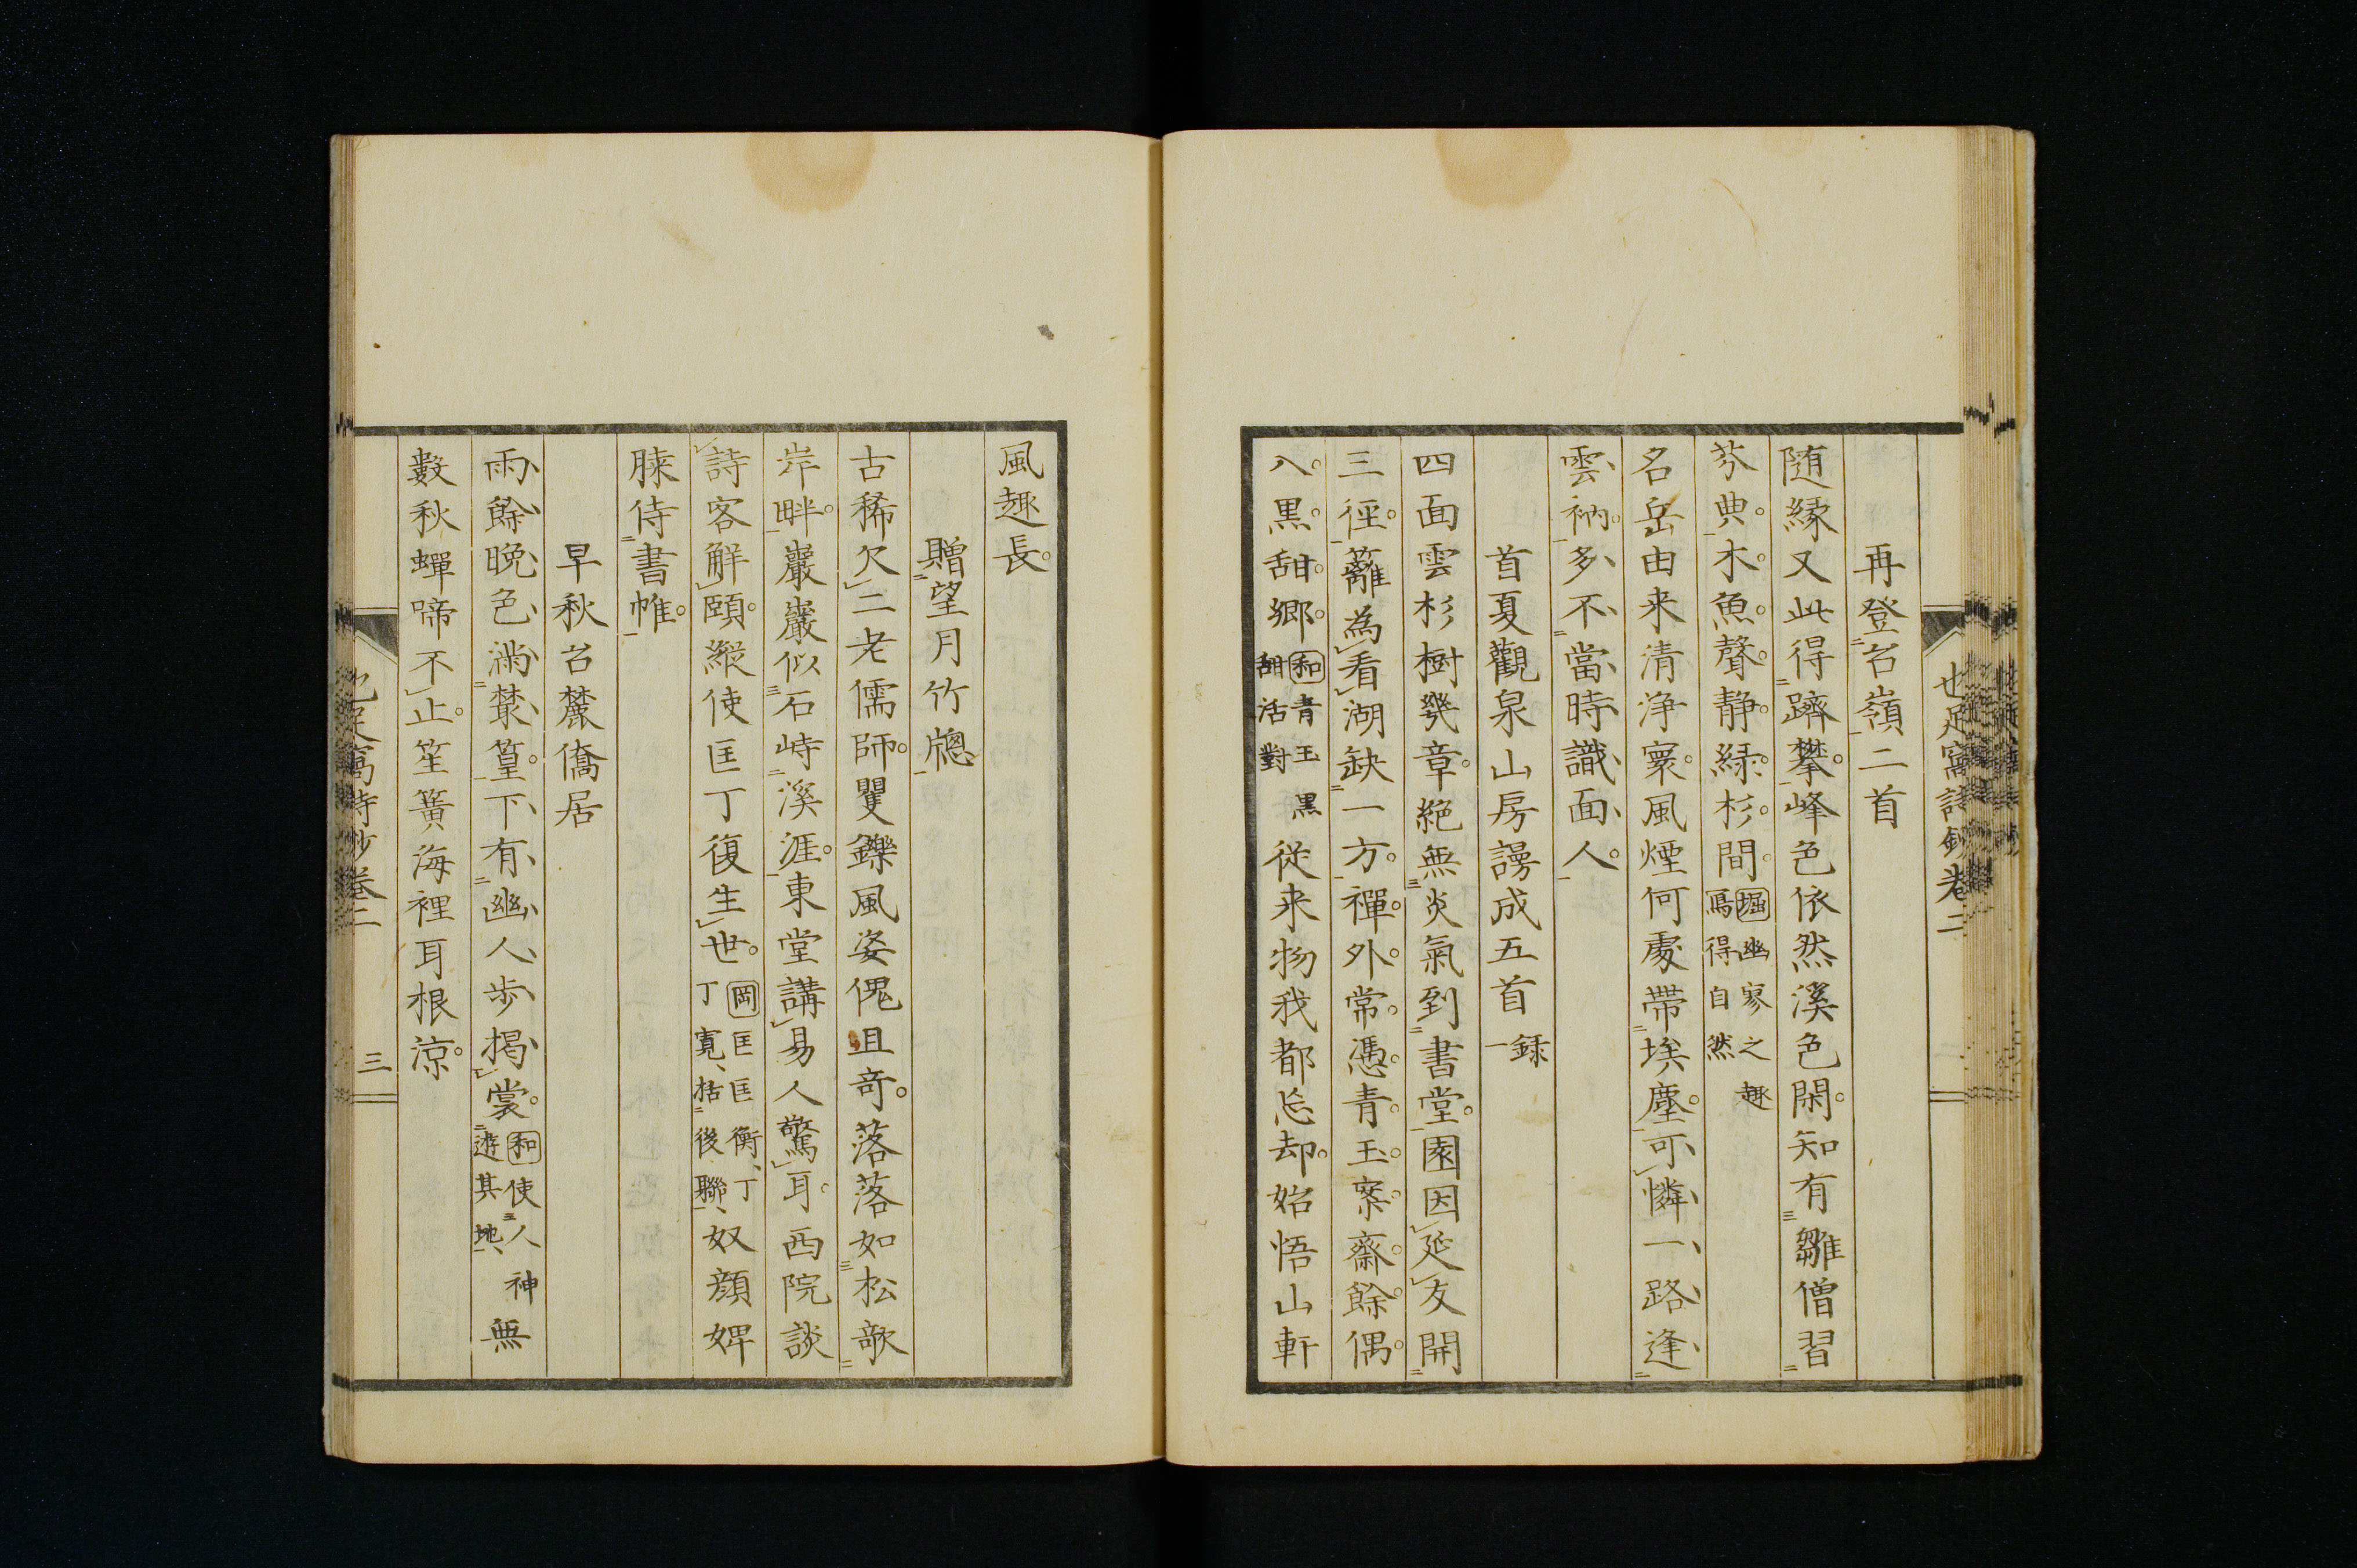 再登召嶺二首
随縁又此得躋攀峰色依然溪色閑知有雛僧習
芬典木魚聲静緑杉間堀幽寥之趣寫得自然
名岳由来清浄寰風煙何處帶埃塵可憐一路逢
雲衲多不當時識面人
首夏觀泉山房謾成五首録一
四面雲杉樹幾章絶無炎氣到書堂園因延友開
三徑籬為看湖缺一方禪外常憑青玉案齋餘偶
入黒甜郷和青玉黒甜活對從来物我都忘却始悟山軒
也足窩詩鈔卷二
風趣長
贈望月竹牕
古稀欠二老儒師矍鑠風姿傀且奇落落如松欹
岸畔巖巖似石峙溪涯東堂講易人驚耳西院談
詩客解頤縦使匡丁復生世岡匡匡衡、丁丁寛、括後聯、奴顔婢
膝侍書帷
早秋召麓僑居
雨餘晩色満叢篁下有幽人歩掲裳和使人神遊其地、無
數秋蟬啼不止笙簧海裡耳根涼
也足窩詩鈔卷二
三